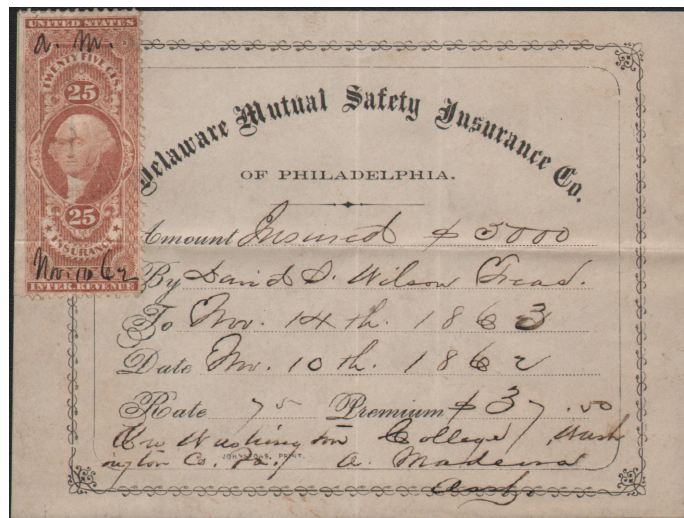 UNITED STATES
a. M.
TWENTY FIVE CTS.
25
25
INSURANCE
Nov. 10 62
INTER. REVENUE
Delaware Mutual Safety Insurance Co.
OF PHILADELPHIA.
Amount Insured $ 5000
By David S. Wilson Treas.
To Nov. 14th. 1863
Date Nov. 10th. 1862
Rate 75 Premium $ 37.50
On Washington College, Wash
ington Co. Pa. A. Madeira
JOHNSONS, PRINT.